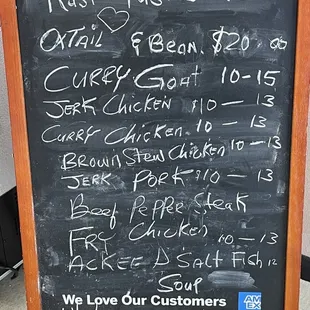 OXTAIL & Bean. $20.00
CURRY GOAT 10-15
JERK CHICKEN $10 — 13
CURRY CHICKEN 10 — 13
BROWN Stew CHICKEN 10 — 13
JERK PORK $10 — 13
Beef PePPer Steak
FRY Chicken 10 — 13
ACKEE & Salt Fish 12
Soup
We Love Our Customers
AM
EX